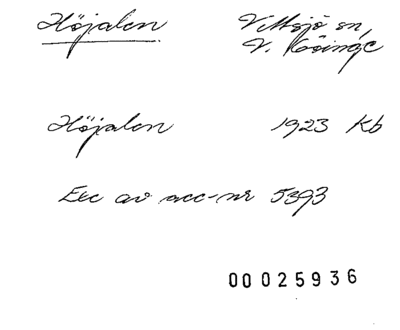 Höjalen Vittsjö sn,
V. Göinge
Höjalen 1923 Kb
Exc av acc-nr 5393
00 025936